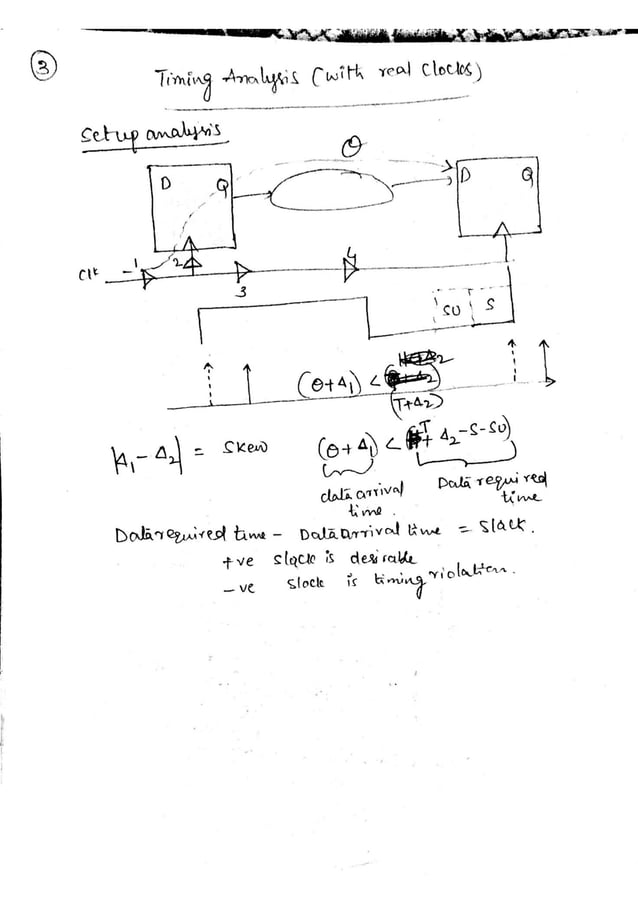 3
Timing Analysis (with real Clocks)
Setup analysis
θ
D Q
D Q
Clk
1
2
3
4
SU S
(θ+Δ1) < (T+Δ2)
|Δ1-Δ2| = Skew
(θ+Δ1) < (T+Δ2-S-SU)
data arrival time.
Data required time
Data required time - Data arrival time = Slack.
+ve slack is desirable
-ve slack is timing violation.